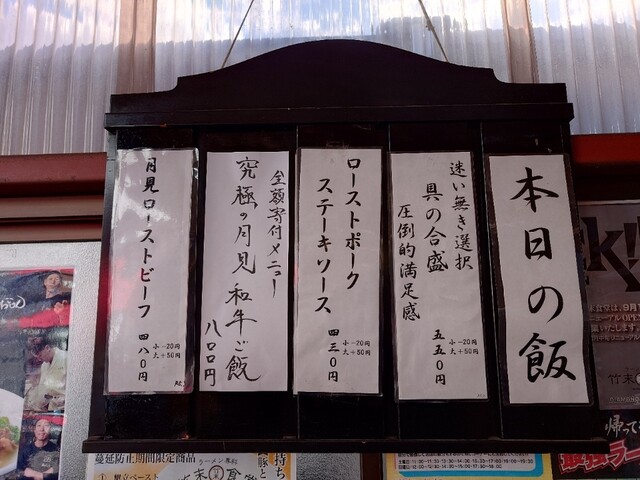 本日の飯
迷い無き選択
具の合盛
圧倒的満足感
小-20円
大+50円
五五0円
ローストポーク
ステーキソース
小-20円
大+50円
四三0円
全額寄付メニュー
究極の月見和牛ご飯
八00円
月見ローストビーフ
小-20円
大+50円
四八0円
蔓延防止期間限定商品
帰って